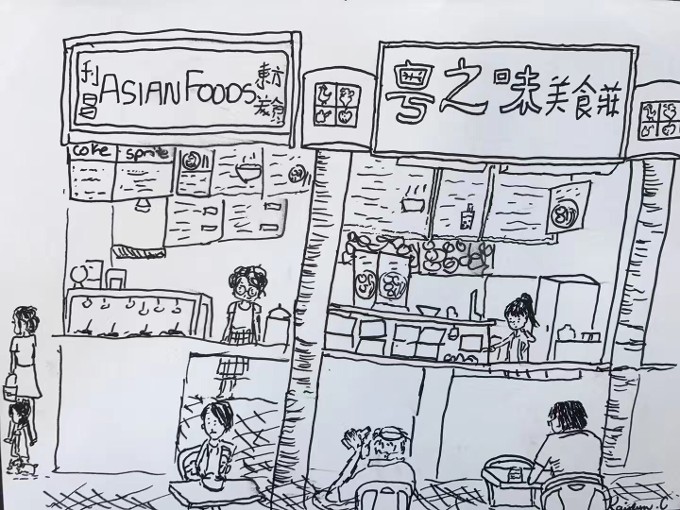 利昌 ASIAN FOODS 東方美食
粤之味美食莊
coke sprite